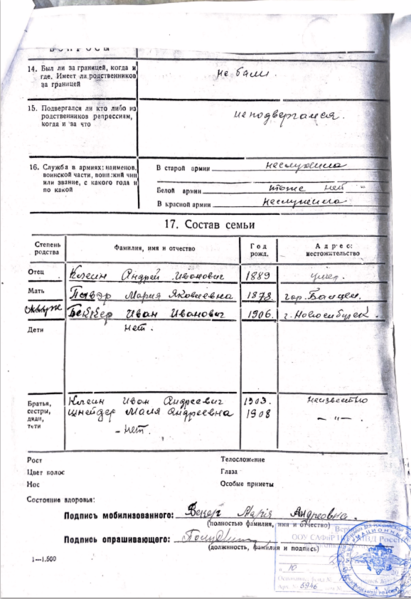 ВОПРОСЫ
14. Был ли за границей, когда и где. Имеет ли родственников за границей
не бали.
15. Подвергался ли кто либо из родственников репрессии, когда и за что
не подвергался.
16. Служба в армиях: наименов. воинской части, воинский чин или звание, с какого года и по какой
В старой армии неслужила
Белой армии тоже нет -
В красной армии неслужила
17. Состав семьи
Степень родства Фамилия, имя и отчество Год рожд. Адрес: местожительство
Отец Клейн Андрей Иванович 1889 умер.
Мать Мария Яковлевна 1878 гор.
муж Иван Иванович 1906. г. Новосибирск.
Дети нет.
Братья, сестры, дяди, тети
Клейн Иван Андреевич 1903. неизвестно
Шнейдер Андреевна 1908 - " -.
- нет.
Рост Телосложение
Цвет волос Глаза
Нос Особые приметы
Состояние здоровья:
Подпись мобилизованного: Мария Андреевна.
(полностью фамилия, имя и отчество)
Подпись опрашивающего:
(должность, фамилия и подпись)
1—1.500